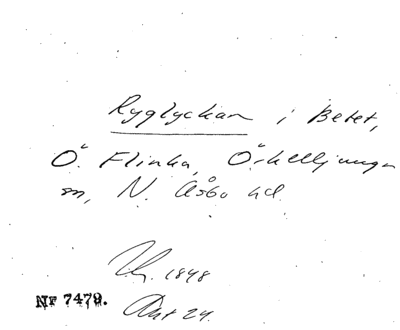 Ryglyckan i Betet,
Ö. Flinka, Örkelljunga
sn, N. Åsbo hd.
1848
NF 7479. Akt 24.